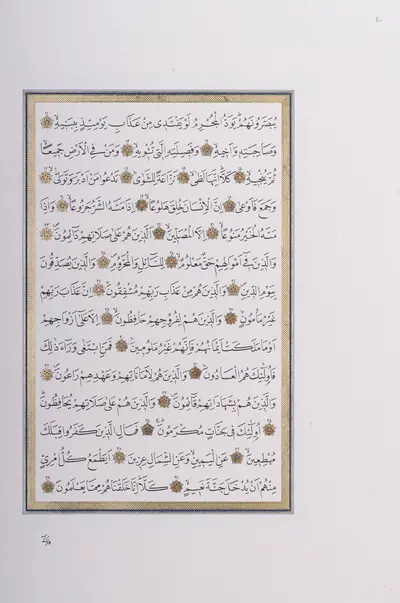 يُبَصَّرُونَهُمْ يَوَدُّ الْمُجْرِمُ لَوْ يَفْتَدِي مِنْ عَذَابِ يَوْمِئِذٍ بِبَنِيهِ
وَصَاحِبَتِهِ وَأَخِيهِ وَفَصِيلَتِهِ الَّتِي تُؤْوِيهِ وَمَنْ فِي الْأَرْضِ جَمِيعًا
ثُمَّ يُنْجِيهِ كَلَّا إِنَّهَا لَظَى نَزَّاعَةً لِلشَّوَى تَدْعُوا مَنْ أَدْبَرَ وَتَوَلَّى
وَجَمَعَ فَأَوْعَى إِنَّ الْإِنْسَانَ خُلِقَ هَلُوعًا إِذَا مَسَّهُ الشَّرُّ جَزُوعًا وَإِذَا
مَسَّهُ الْخَيْرُ مَنُوعًا إِلَّا الْمُصَلِّينَ الَّذِينَ هُمْ عَلَى صَلَاتِهِمْ دَائِمُونَ
وَالَّذِينَ فِي أَمْوَالِهِمْ حَقٌّ مَعْلُومٌ لِلسَّائِلِ وَالْمَحْرُومِ وَالَّذِينَ يُصَدِّقُونَ
بِيَوْمِ الدِّينِ وَالَّذِينَ هُمْ مِنْ عَذَابِ رَبِّهِمْ مُشْفِقُونَ إِنَّ عَذَابَ رَبِّهِمْ
غَيْرُ مَأْمُونٍ وَالَّذِينَ هُمْ لِفُرُوجِهِمْ حَافِظُونَ إِلَّا عَلَى أَزْوَاجِهِمْ
أَوْ مَا مَلَكَتْ أَيْمَانُهُمْ فَإِنَّهُمْ غَيْرُ مَلُومِينَ فَمَنِ ابْتَغَى وَرَاءَ ذَلِكَ
فَأُولَئِكَ هُمُ الْعَادُونَ وَالَّذِينَ هُمْ لِأَمَانَاتِهِمْ وَعَهْدِهِمْ رَاعُونَ
وَالَّذِينَ هُمْ بِشَهَادَاتِهِمْ قَائِمُونَ وَالَّذِينَ هُمْ عَلَى صَلَاتِهِمْ يُحَافِظُونَ
أُولَئِكَ فِي جَنَّاتٍ مُكْرَمُونَ فَمَالِ الَّذِينَ كَفَرُوا قِبَلَكَ
مُهْطِعِينَ عَنِ الْيَمِينِ وَعَنِ الشِّمَالِ عِزِينَ أَيَطْمَعُ كُلُّ امْرِئٍ
مِنْهُمْ أَنْ يُدْخَلَ جَنَّةَ نَعِيمٍ كَلَّا إِنَّا خَلَقْنَاهُمْ مِمَّا يَعْلَمُونَ